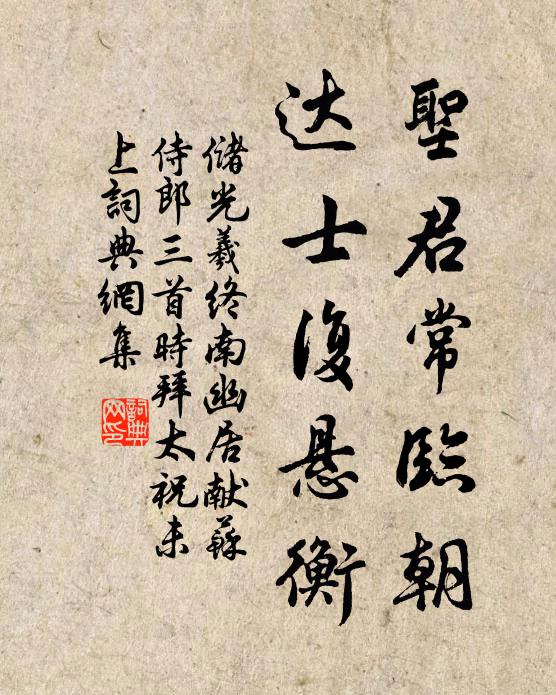 聖君常臨朝
达士復悬衡
儲光羲終南幽居献蘇
侍郎三首時拜太祝未
上詞典網集
詞典
网印